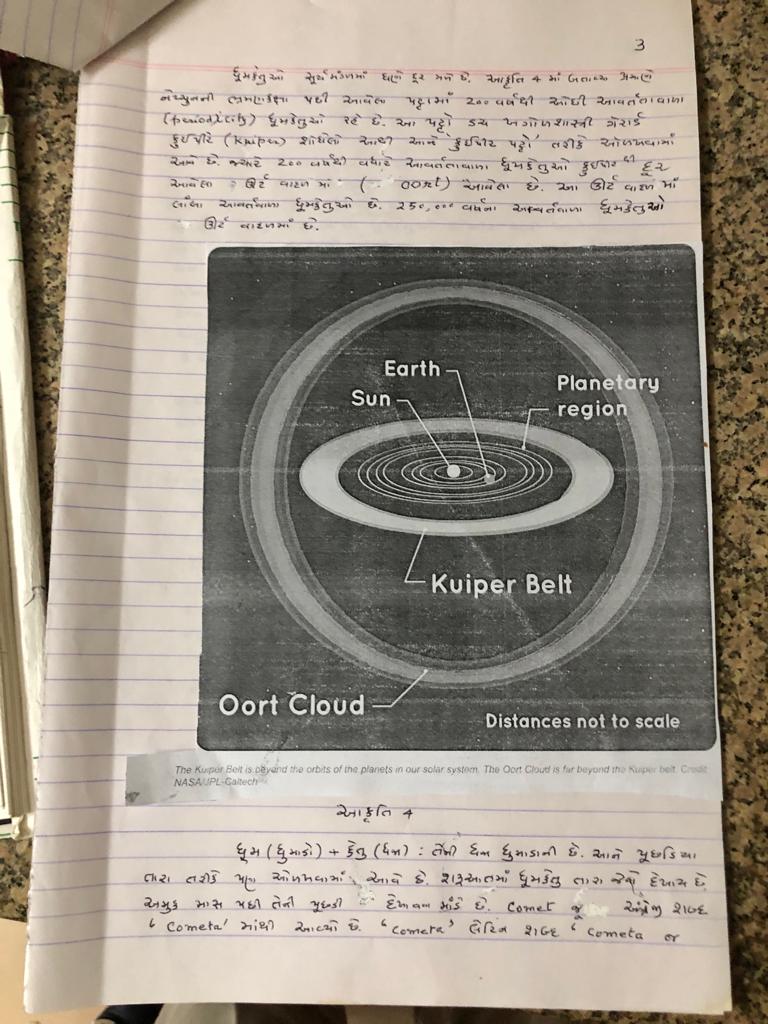 3
ધૂમકેતુઓ સૂર્યમંડળમાં ઘણે દૂર મળે છે. આકૃતિ 4 માં બતાવ્યા પ્રમાણે
નેપ્ચુનની ભ્રમણકક્ષા પછી આવેલા પટ્ટામાં 200 વર્ષથી ઓછી આવર્તતાવાળા
(periodicity) ધૂમકેતુઓ રહે છે. આ પટ્ટો ડચ ખગોળશાસ્ત્રી ગેરાર્ડ
કુઇપીટે (Kuiper) શોધેલો આથી આને 'કુઇપીટ પટ્ટો' તરીકે ઓળખવામાં
આવે છે. જ્યારે 200 વર્ષથી વધારે આવર્તતાવાળા ધૂમકેતુઓ કુઇપીટથી દૂર
આવેલા ઊર્ટ વાદળ માં (Oort) આવેલા છે. આ ઊર્ટ વાદળ માં
લાંબા આવર્તવાળા ધૂમકેતુઓ છે. 250,000 વર્ષના આવર્તવાળા ધૂમકેતુઓ
ઊર્ટ વાદળમાં છે.
Earth
Sun
Planetary
region
Kuiper Belt
Oort Cloud
Distances not to scale
The Kuiper Belt is beyond the orbits of the planets in our solar system. The Oort Cloud is far beyond the Kuiper belt. Credit
NASA/JPL-Caltech
આકૃતિ 4
ધૂમ (ધુમાડો) + કેતુ (ધજા) : તેની ધજા ધુમાડાની છે. આને પૂછડિયા
તારા તરીકે પણ ઓળખવામાં આવે છે. શરૂઆતમાં ધૂમકેતુ તારા જેવો દેખાય છે.
અમુક માસ પછી તેની પૂછડી દેખાવા માંડે છે. Comet અંગ્રેજી શબ્દ
'Cometa' માંથી આવ્યો છે. 'Cometa' લેટિન શબ્દ 'Cometa જ